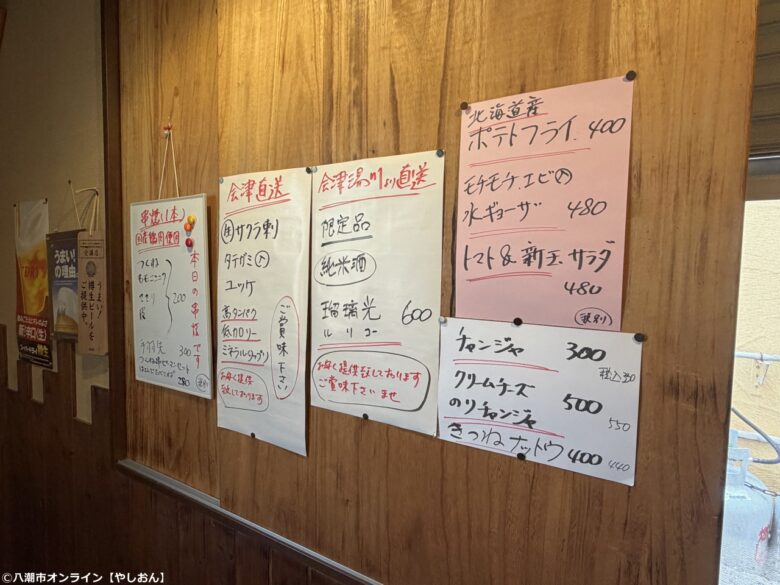 うまい!
の理由。
うまい!
樽生ビールを
ご提供中。
串焼(1本)
国産鶏肉使用
本日の串焼です
つくね
ももニンニク
ささみ
200
手羽先 300
会津直送
生サクラ刺
タテガミ入
ユッケ
高タンパク
低カロリー
ミネラルタップリ
お安く提供
致しております
ご賞味下さい
会津湯川より直送
限定品
純米酒
瑠璃光 600
ルリコー
お安く提供致しております
ご賞味下さいませ
北海道産
ポテトフライ 400
モチモチエビ入
水ギョーザ 480
トマト&新玉サラダ
480
(税別)
チャンジャ 300
税込330
クリームチーズ
のりチャンジャ 500
550
きつねナットウ 400 440
©八潮市オンライン【やしおん】